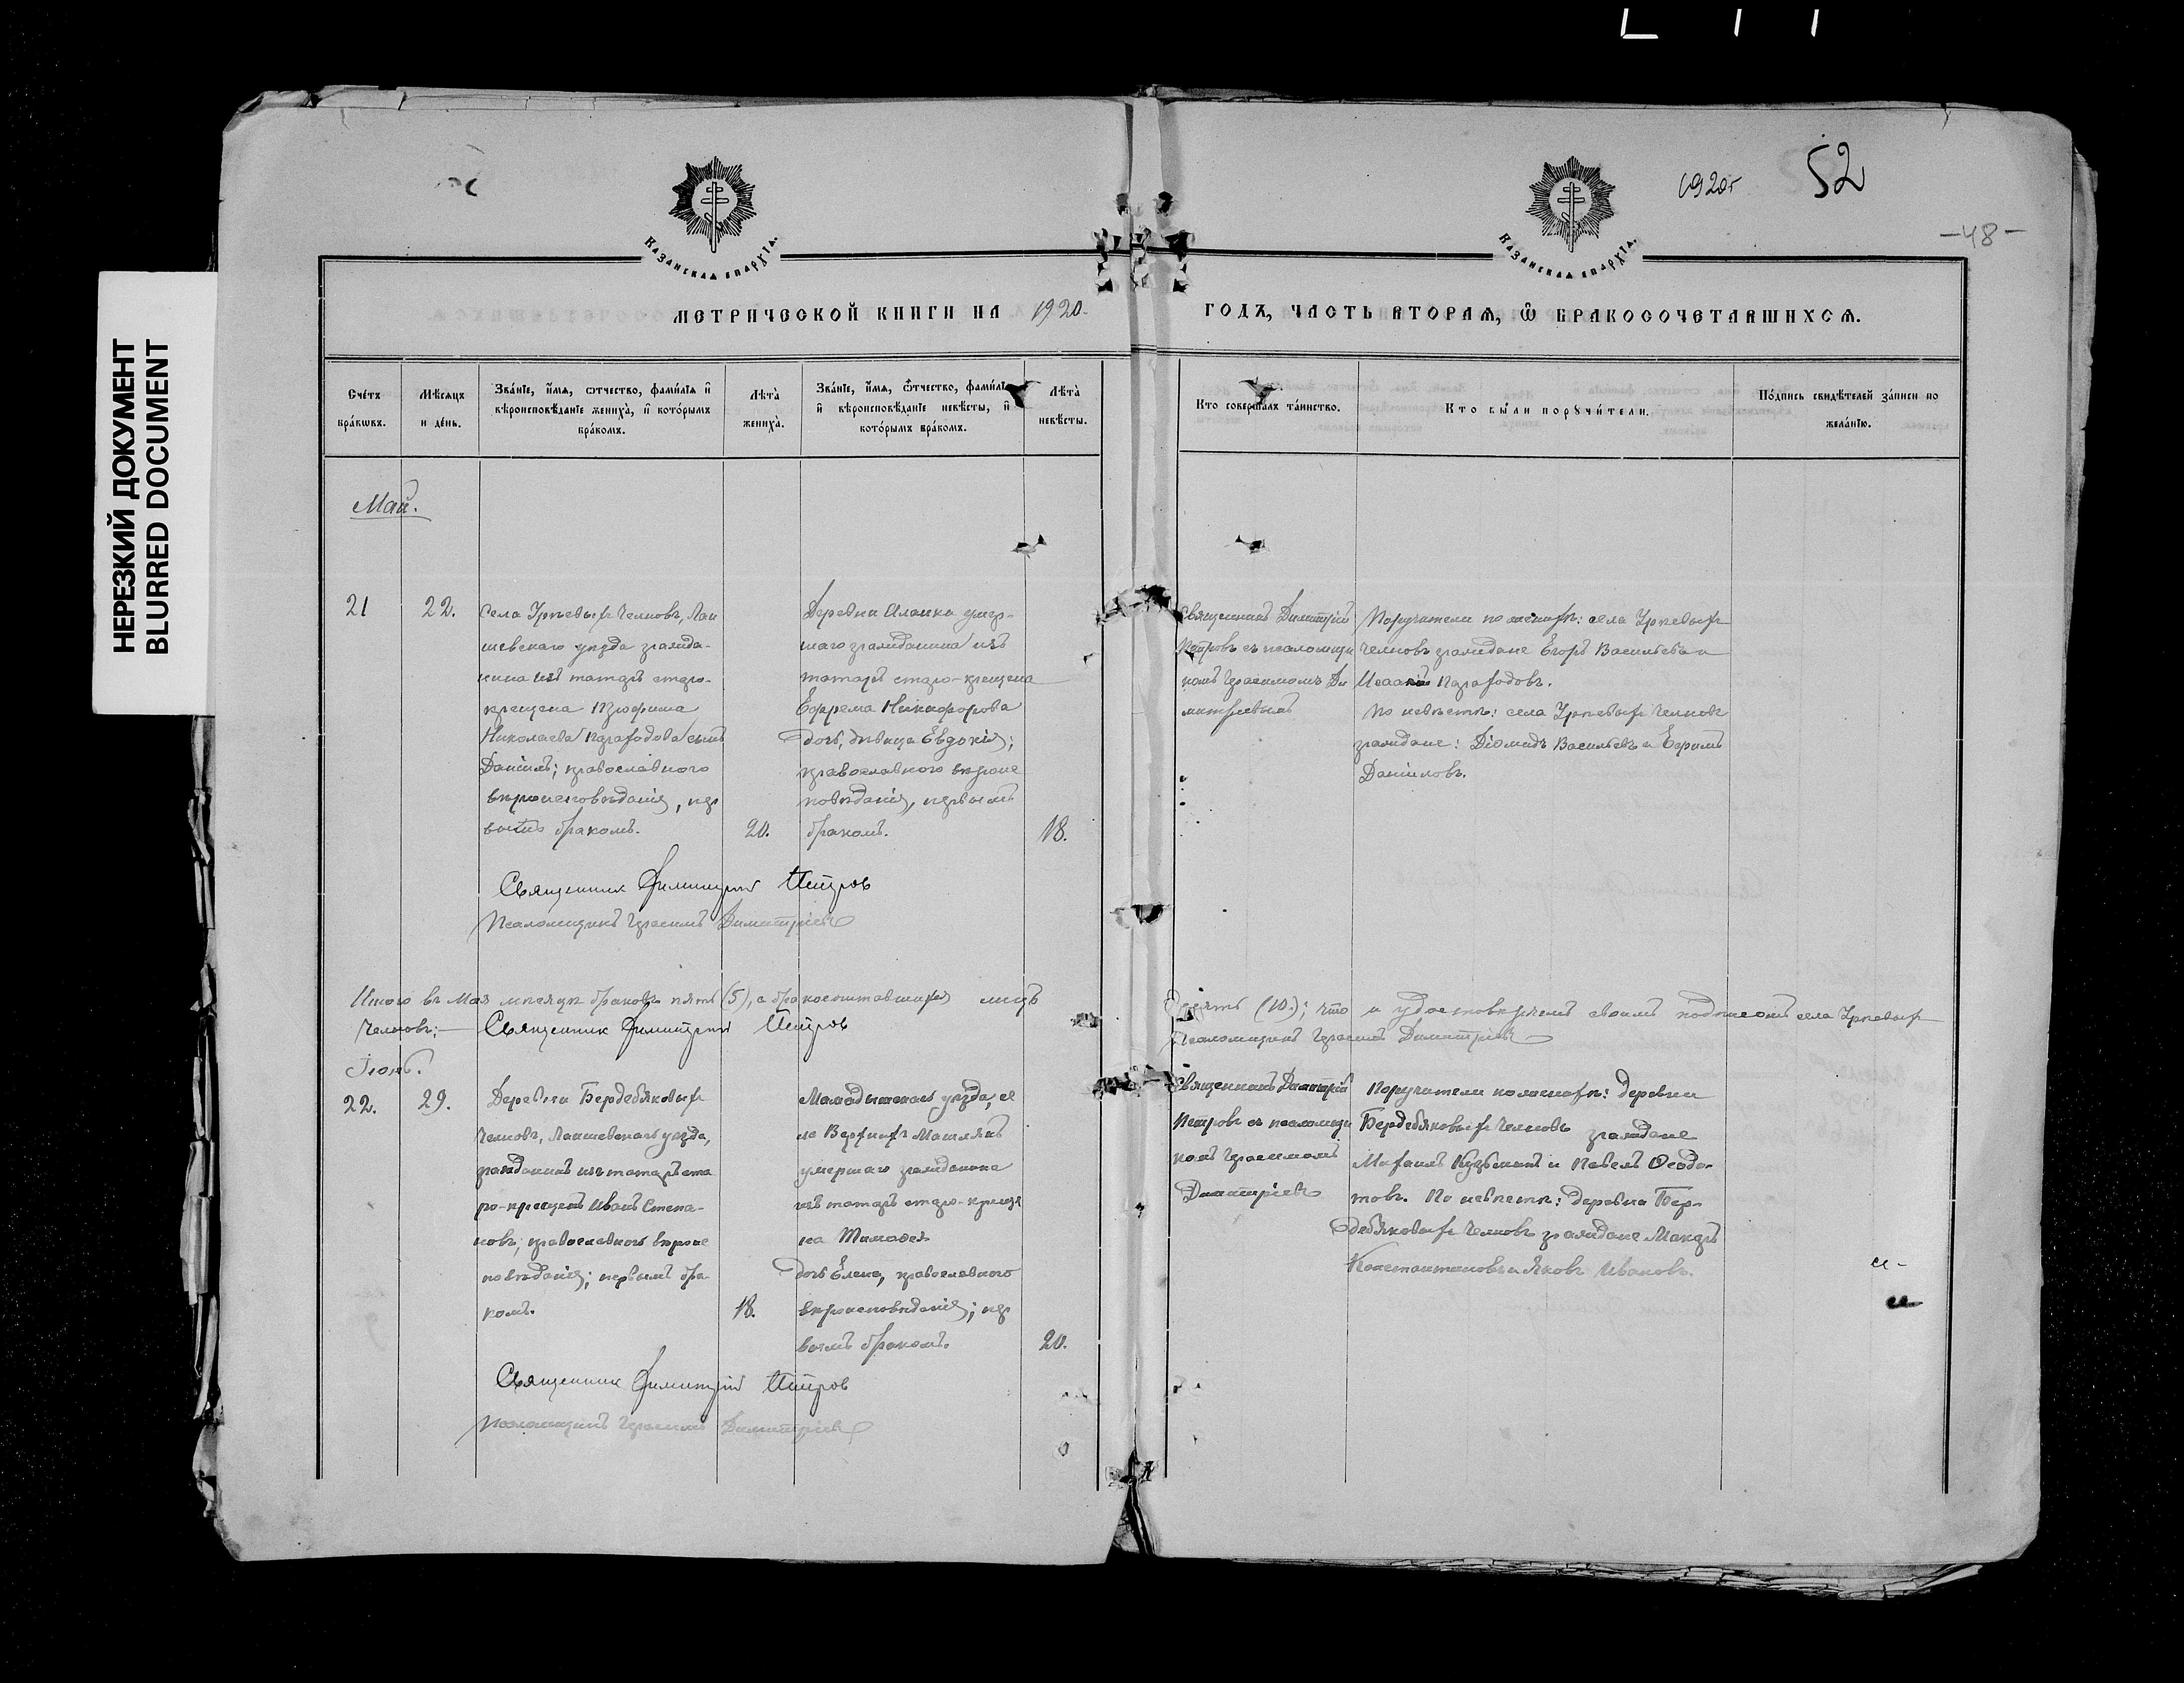 НЕРЕЗКИЙ ДОКУМЕНТ
BLURRED DOCUMENT
1920г
52
-48-
КАЗАНСКАЯ ЕПАРХІЯ.
КАЗАНСКАЯ ЕПАРХІЯ.
МЕТРИЧЕСКОЙ КНИГИ НА 1920 ГОДЪ, ЧАСТЬ ВТОРАЯ, Ѡ БРАКОСОЧЕТАВШИХСЯ.
Счетъ
браковъ.
Мѣсяцъ
и день.
Званіе, имя, отчество, фамилія и
вѣроисповѣданіе жениха, и которымъ
бракомъ.
Лѣта
жениха.
Званіе, имя, ѿтчество, фамилія
и вѣроисповѣданіе невѣсты, и
которымъ бракомъ.
Лѣта
невѣсты.
Кто совершалъ таинство.
Кто были поручители.
Подпись свидѣтелей записи по
желанію.
Май.
21
22.
Села Урѣевыхъ Челновъ, Лаи
шевскаго уѣзда гражда-
нина изъ татаръ старо-
крещена Трофима
Николаева Парафодова сынъ
Даніилъ; православнаго
вѣроисповѣданія, пер
вымъ бракомъ.
20.
Деревни Иланки умер-
шаго гражданина изъ
татаръ старо-крещена
Ефрема Никифорова
дочь, дѣвица Евдокія;
православнаго вѣроис
повѣданія, первымъ
бракомъ.
18.
Священникъ Димитрій
Петровъ съ псаломщи
комъ Герасимомъ Ди
митріевымъ
Поручители по женихѣ: села Урѣевыхъ
Челновъ граждане Егоръ Васильевъ и
Исаакій Парафодовъ.
По невѣстѣ: села Урѣевыхъ Челновъ
граждане: Діомидъ Васильевъ и Ефимъ
Даніиловъ.
Священник Димитрий Петров
Псаломщикъ Герасимъ Димитріевъ
Итого въ Маѣ мѣсяцѣ браковъ пять (5), а бракосочетавшихся лицъ десять (10.); что и удостовѣряемъ своимъ подписомъ села Урѣевыхъ
Челновъ: Священник Димитрий Петров Псаломщикъ Герасимъ Димитріевъ
Іюнь.
22.
29.
Деревни Бердебяковыхъ
Челновъ, Лаишевскаго уѣзда,
гражданинъ изъ татаръ ста
ро-крещенъ Иванъ Степа-
новъ; православнаго вѣроис
повѣданія; первымъ бра
комъ.
18.
Мамадышскаго уѣзда, се
ла Верхнихъ Машлякъ
умершаго гражданина
изъ татаръ старо-креще
на Тимоѳея
дочь Елена, православнаго
вѣроисповѣданія; пер
вымъ бракомъ.
20.
Священникъ Димитрій
Петровъ съ псаломщи
комъ Герасимомъ
Димитріевъ
Поручители по женихѣ: деревни
Бердебяковыхъ Челновъ граждане
Михаилъ Кузьминъ и Павелъ Ѳеодо-
товъ. По невѣстѣ: деревни Бер-
дебяковыхъ Челновъ граждане Макаръ
Константиновъ и Яковъ Ивановъ.
Священник Димитрий Петров
Псаломщикъ Герасимъ Димитріевъ